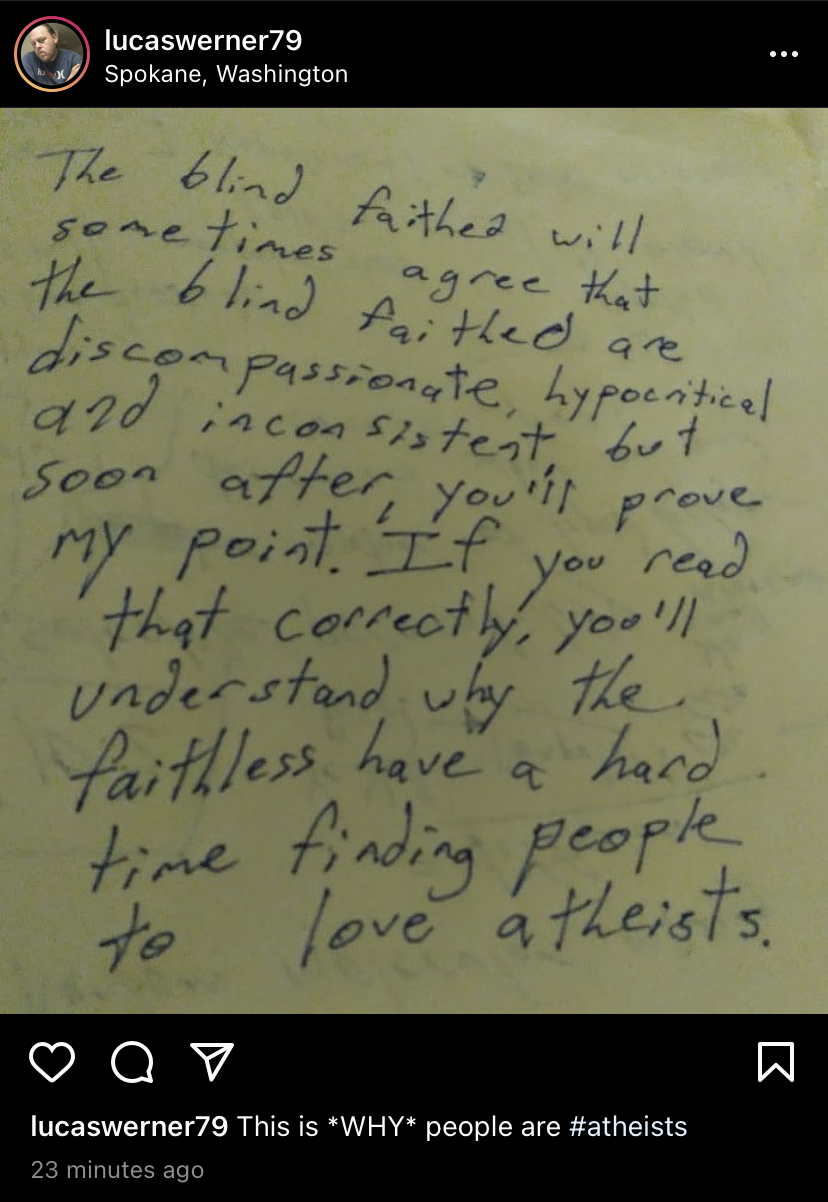 lucaswerner79
Spokane, Washington
The blind faithed will
sometimes agree that
the blind faithed are
discompassionate, hypocritical
and inconsistent, but
soon after, you'll prove
my point. If you read
that correctly, you'll
understand why the
faithless have a hard
time finding people
to love atheists.
lucaswerner79 This is *WHY* people are #atheists
23 minutes ago